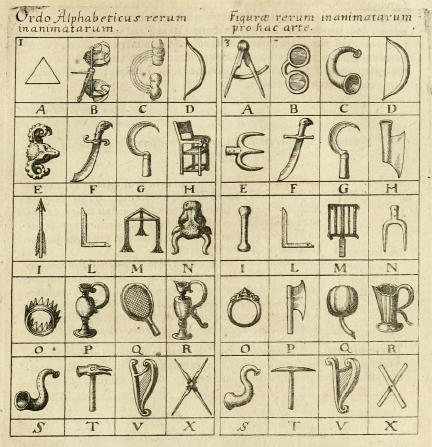 Ordo Alphabeticus rerum
inanimatarum.
1
A B C D
E F G H
I L M N
O P Q R
S T V X
Figuræ rerum inanimatarum
pro hac arte.
3
A B C D
E F G H
I L M N
O P Q R
S T V X